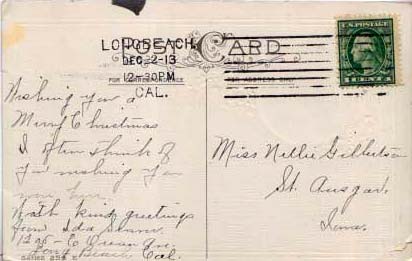 POST CARD
LONG BEACH,
DEC 2-13
12-30 PM
CAL.
U.S. POSTAGE
1 CENT 1
FOR CORRESPONDENCE
FOR ADDRESS ONLY
Wishing you a
Merry Christmas
I often think of
you
With kind greetings
from Ida
E Ocean Ave
Long Beach Cal.
Miss Nellie Gilbertson
St. Ansgar,
Iowa.
SERIES